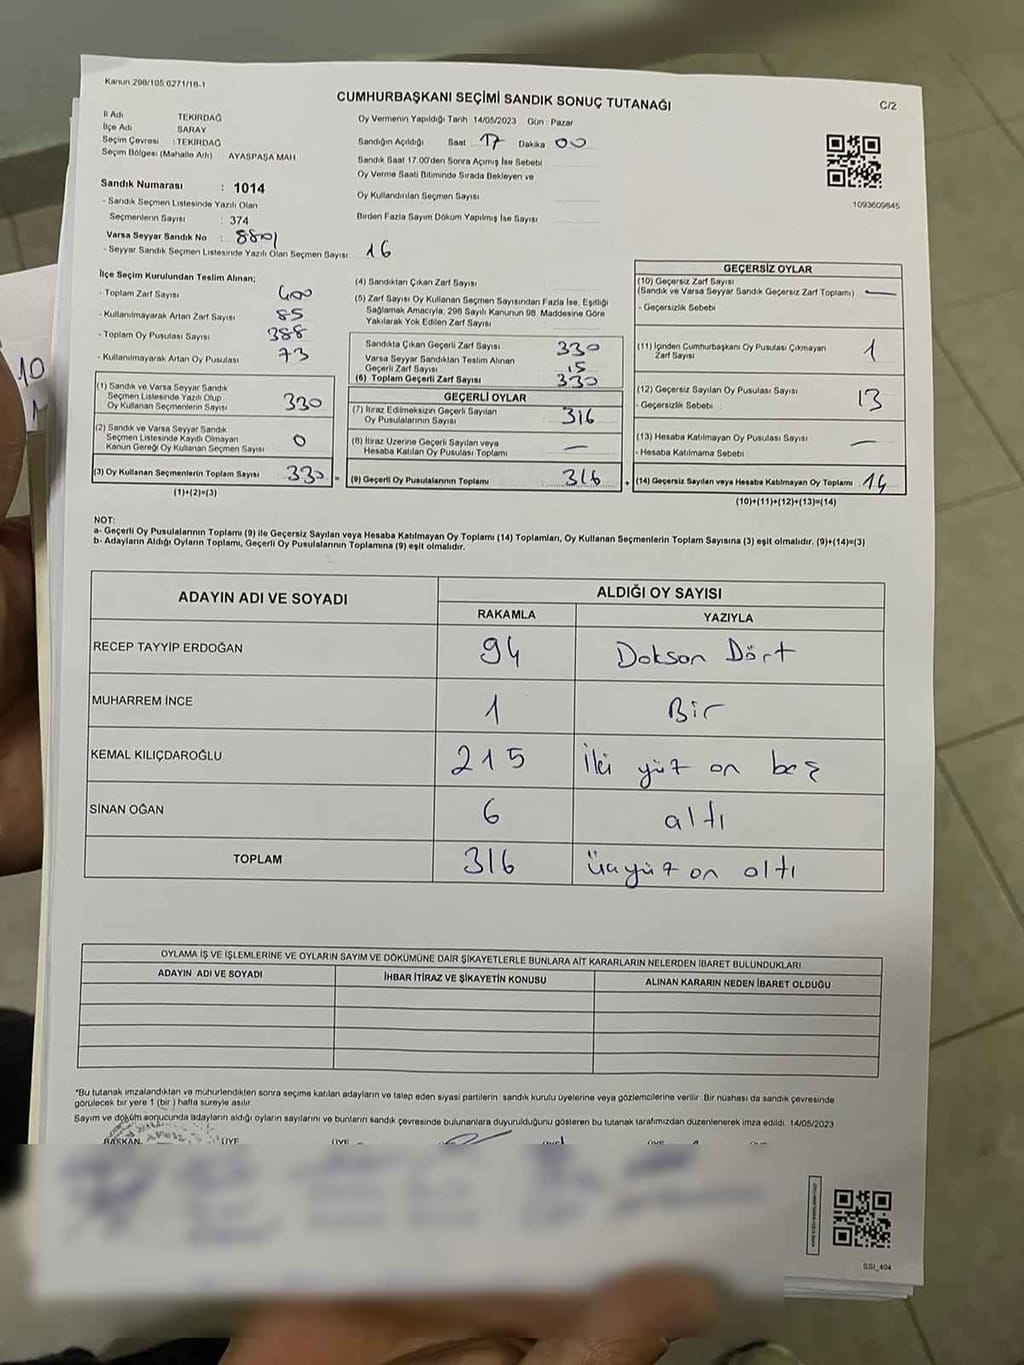 Kanun:298/105,6271/18-1
CUMHURBAŞKANI SEÇİMİ SANDIK SONUÇ TUTANAĞI
C/2
İl Adı TEKİRDAĞ
İlçe Adı SARAY
Seçim Çevresi : TEKİRDAĞ
Seçim Bölgesi (Mahalle Adı) AYASPAŞA MAH
Oy Vermenin Yapıldığı Tarih 14/05/2023 Gün : Pazar
Sandığın Açıldığı Saat 17 Dakika 00
Sandık Saat 17.00'den Sonra Açımış İse Sebebi
Oy Verme Saati Bitiminde Sırada Bekleyen ve
Oy Kullandırılan Seçmen Sayısı
Birden Fazla Sayım Döküm Yapılmış İse Sayısı
1093609845
Sandık Numarası : 1014
- Sandık Seçmen Listesinde Yazılı Olan
Seçmenlerin Sayısı : 374
Varsa Seyyar Sandık No : 8801
- Seyyar Sandık Seçmen Listesinde Yazılı Olan Seçmen Sayısı 16
İlçe Seçim Kurulundan Teslim Alınan;
- Toplam Zarf Sayısı 400
- Kullanılmayarak Artan Zarf Sayısı 85
- Toplam Oy Pusulası Sayısı 388
- Kullanılmayarak Artan Oy Pusulası 73
(1) Sandık ve Varsa Seyyar Sandık
Seçmen Listesinde Yazılı Olup
Oy Kullanan Seçmenlerin Sayısı 330
(2) Sandık ve Varsa Seyyar Sandık
Seçmen Listesinde Kayıtlı Olmayan
Kanun Gereği Oy Kullanan Seçmen Sayısı 0
(3) Oy Kullanan Seçmenlerin Toplam Sayısı 330 =
(1)+(2)=(3)
(4) Sandıktan Çıkan Zarf Sayısı
(5) Zarf Sayısı Oy Kullanan Seçmen Sayısından Fazla İse, Eşitliği
Sağlamak Amacıyla, 298 Sayılı Kanunun 98. Maddesine Göre
Yakılarak Yok Edilen Zarf Sayısı
Sandıkta Çıkan Geçerli Zarf Sayısı 330
Varsa Seyyar Sandıktan Teslim Alınan
Geçerli Zarf Sayısı 15
(6) Toplam Geçerli Zarf Sayısı 330
GEÇERLİ OYLAR
(7) İtiraz Edilmeksizin Geçerli Sayılan
Oy Pusulalarının Sayısı 316
(8) İtiraz Üzerine Geçerli Sayılan veya
Hesaba Katılan Oy Pusulası Toplamı —
(9) Geçerli Oy Pusulalarının Toplamı 316 +
GEÇERSİZ OYLAR
(10) Geçersiz Zarf Sayısı
(Sandık ve Varsa Seyyar Sandık Geçersiz Zarf Toplamı) —
- Geçersizlik Sebebi
(11) İçinden Cumhurbaşkanı Oy Pusulası Çıkmayan
Zarf Sayısı 1
(12) Geçersiz Sayılan Oy Pusulası Sayısı 13
- Geçersizlik Sebebi :
(13) Hesaba Katılmayan Oy Pusulası Sayısı —
- Hesaba Katılmama Sebebi
(14) Geçersiz Sayılan veya Hesaba Katılmayan Oy Toplamı : 14
(10)+(11)+(12)+(13)=(14)
NOT:
a- Geçerli Oy Pusulalarının Toplamı (9) ile Geçersiz Sayılan veya Hesaba Katılmayan Oy Toplamı (14) Toplamları, Oy Kullanan Seçmenlerin Toplam Sayısına (3) eşit olmalıdır. (9)+(14)=(3)
b- Adayların Aldığı Oyların Toplamı, Geçerli Oy Pusulalarının Toplamına (9) eşit olmalıdır.
ADAYIN ADI VE SOYADI
ALDIĞI OY SAYISI
RAKAMLA YAZIYLA
RECEP TAYYİP ERDOĞAN 94 Dokson Dört
MUHARREM İNCE 1 Bir
KEMAL KILIÇDAROĞLU 215 İki yüz on beş
SİNAN OĞAN 6 altı
TOPLAM 316 üçyüz on altı
OYLAMA İŞ VE İŞLEMLERİNE VE OYLARIN SAYIM VE DÖKÜMÜNE DAİR ŞİKAYETLERLE BUNLARA AİT KARARLARIN NELERDEN İBARET BULUNDUKLARI
ADAYIN ADI VE SOYADI İHBAR İTİRAZ VE ŞİKAYETİN KONUSU ALINAN KARARIN NEDEN İBARET OLDUĞU
*Bu tutanak imzalandıktan ve mühürlendikten sonra seçime katılan adayların ve talep eden siyasi partilerin sandık kurulu üyelerine veya gözlemcilerine verilir. Bir nüshası da sandık çevresinde
görülecek bir yere 1 (bir ) hafta süreyle asılır.
Sayım ve döküm sonucunda adayların aldığı oyların sayılarını ve bunların sandık çevresinde bulunanlara duyurulduğunu gösteren bu tutanak tarafımızdan düzenlenerek imza edildi. 14/05/2023
BAŞKAN ÜYE ÜYE
GSI_404
10